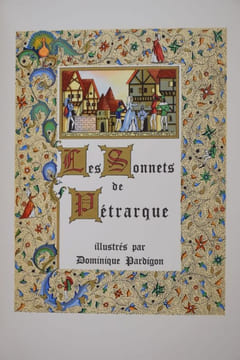 Les Sonnets
de
Pétrarque
illustrés par
Dominique Pardigon